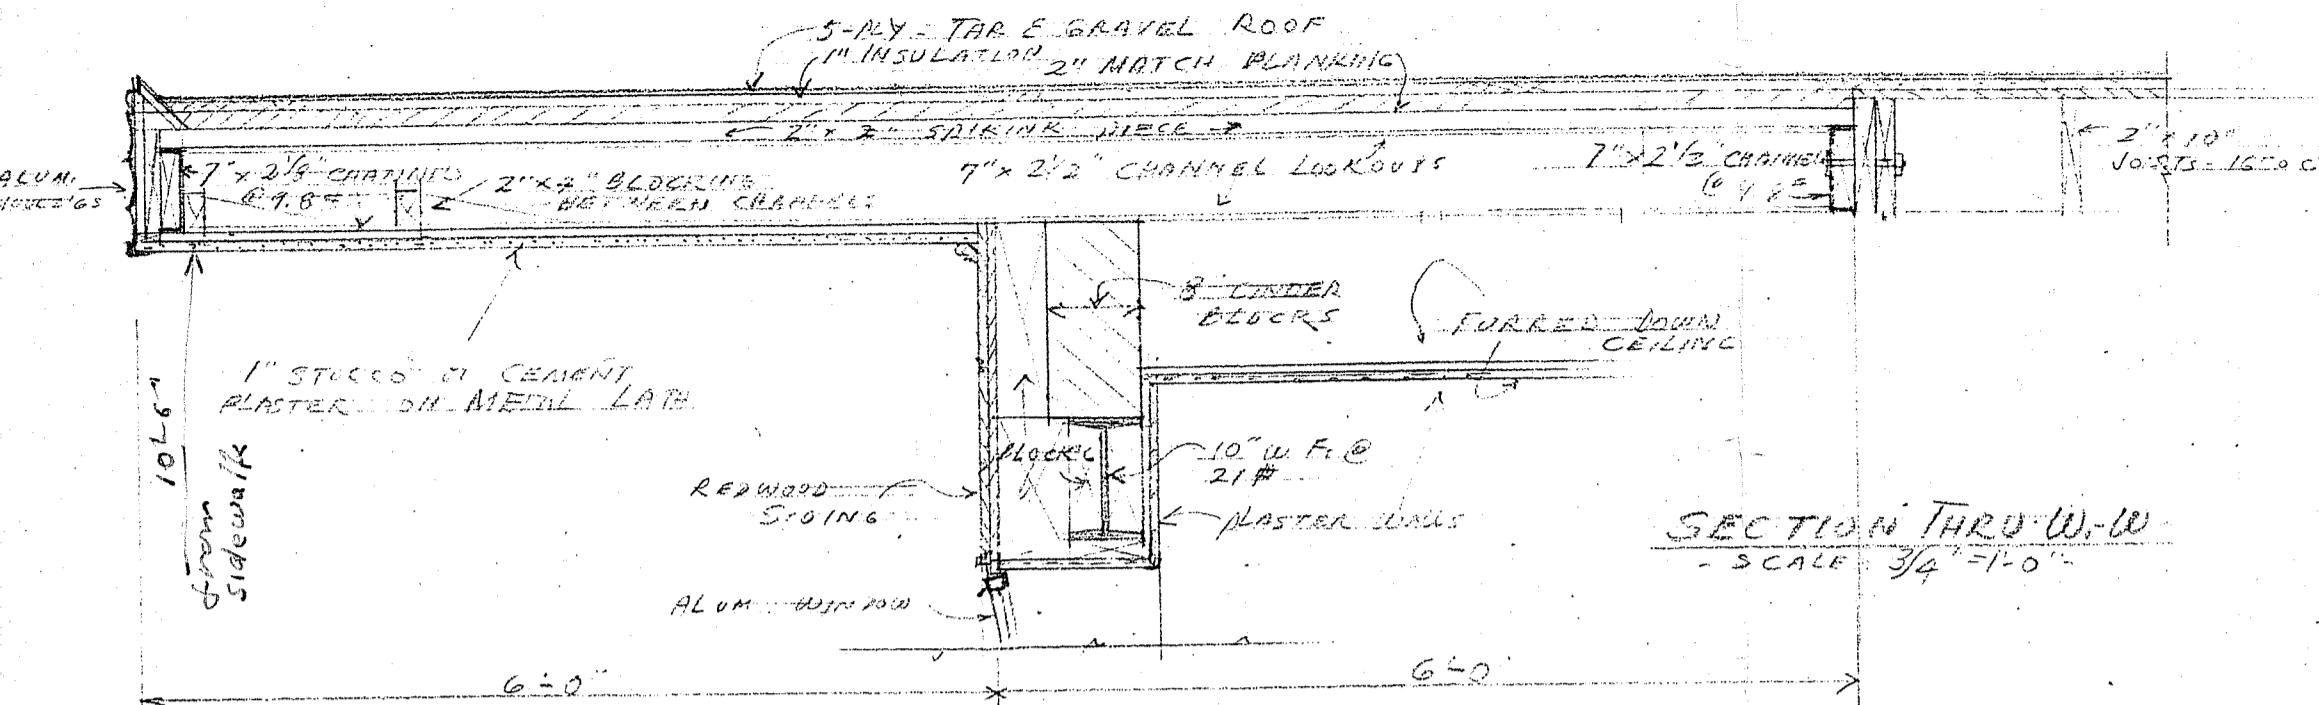 5-PLY - TAR & GRAVEL ROOF
1" INSULATION
2" MATCH PLANKING
2" x 2" SPIKINK PIECE
ALUM.
7" x 2 1/8" CHANNEL
@ 9.8#
2" x 2" BLOCKING
BETWEEN CHANNELS
7" x 2 1/2" CHANNEL LOOKOUTS
7" x 2 1/2" CHANNEL
@ 9.8#
2" x 10"
JOISTS - 16" O C
8" CINDER
BLOCKS
FURRED DOWN
CEILING
1" STUCCO OR CEMENT
PLASTER ON METAL LATH
10'-6"
from
sidewalk
REDWOOD
SIDING
10" W F. @
21 #
PLASTER WALLS
ALUM WINDOW
SECTION THRU W-W
- SCALE 3/4" = 1'-0" -
6'-0"
6'-0